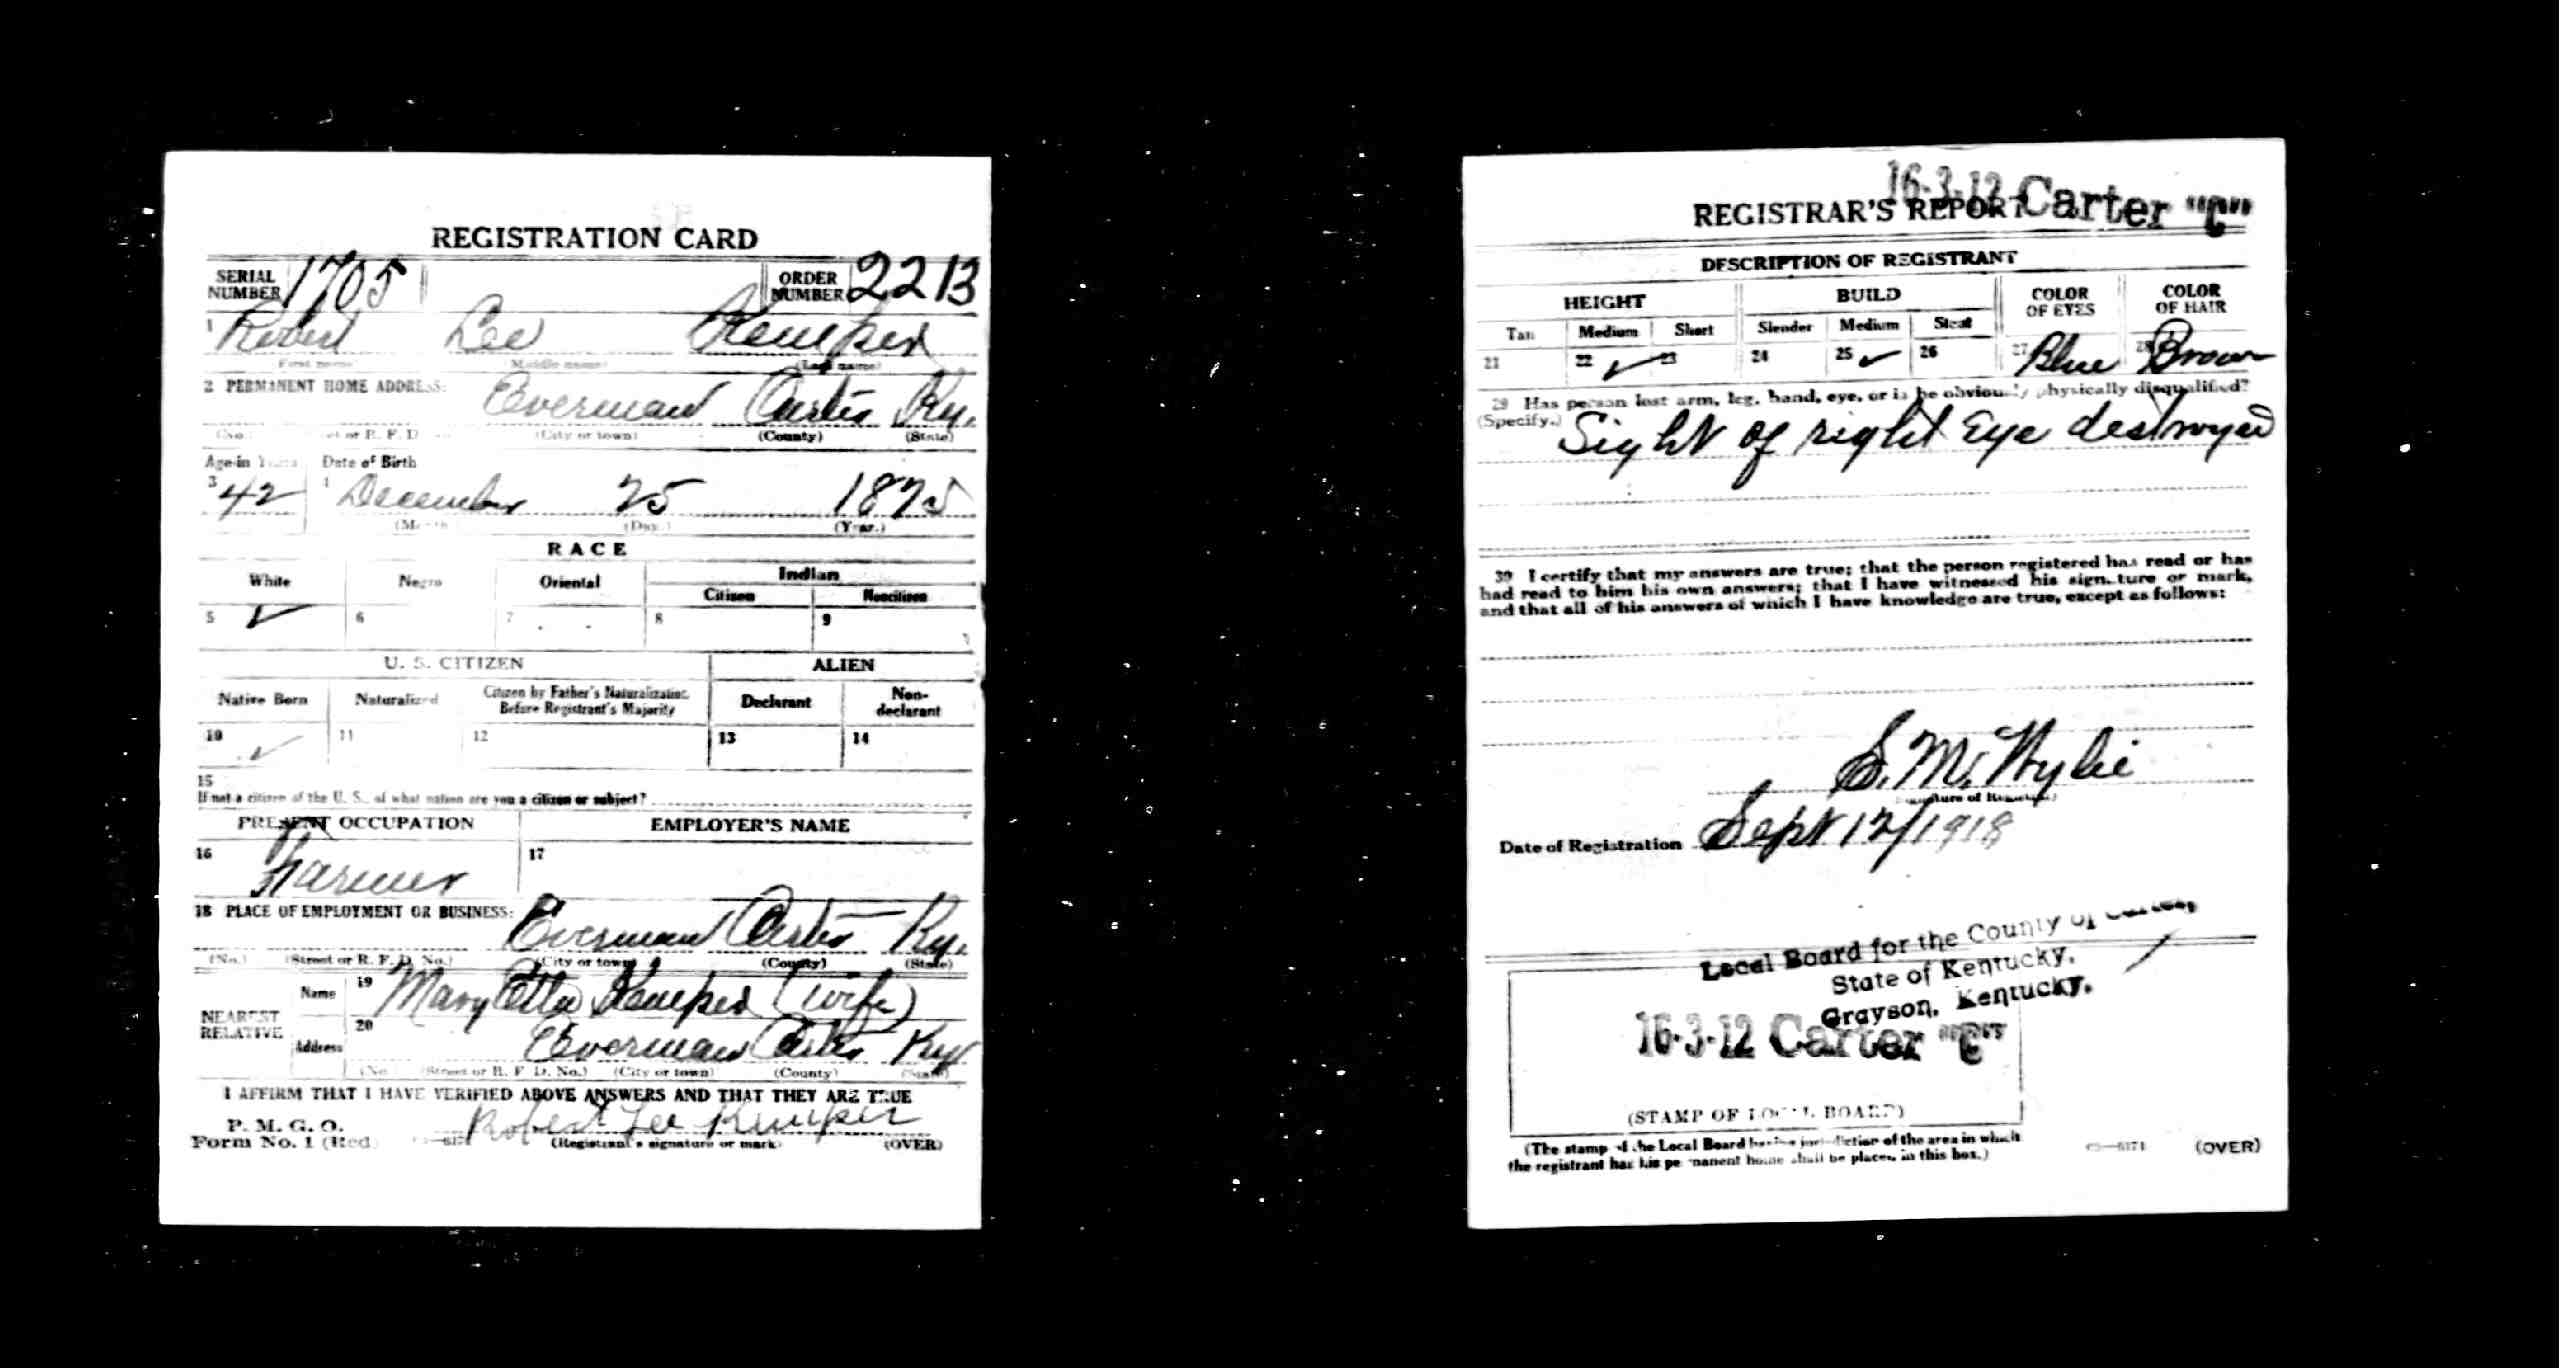 REGISTRATION CARD
SERIAL NUMBER 1705 ORDER NUMBER 2213
1 Robert Lee Kemper
First name Middle name (Last name)
2 PERMANENT HOME ADDRESS: Everman Carter Ky.
(No.) R. F. D. (City or town) (County) (State)
Age in Years Date of Birth
3 42 December 25 1875
(Month (Day.) (Year.)
RACE
White Negro Oriental Indian
Citizen Noncitizen
5 ✓ 6 7 8 9
U. S. CITIZEN ALIEN
Native Born Naturalized Citizen by Father's Naturalization Before Registrant's Majority Declarant Non-declarant
10 ✓ 11 12 13 14
15
If not a citizen of the U. S., of what nation are you a citizen or subject?
PRESENT OCCUPATION EMPLOYER'S NAME
16 Farmer 17
18 PLACE OF EMPLOYMENT OR BUSINESS: Everman Carter Ky.
(No.) (Street or R. F. D. No.) (City or town) (County) (State)
NEAREST RELATIVE Name 19 Mary Etta Kemper (wife)
Address 20 Everman Carter Ky
(No.) (Street or R. F. D. No.) (City or town) (County) (State)
I AFFIRM THAT I HAVE VERIFIED ABOVE ANSWERS AND THAT THEY ARE TRUE
P. M. G. O.
Form No. 1 (Red) Robert Lee Kemper
(Registrant's signature or mark) (OVER)
16-3-12 Carter "C"
REGISTRAR'S REPORT
DESCRIPTION OF REGISTRANT
HEIGHT BUILD COLOR OF EYES COLOR OF HAIR
Tall Medium Short Slender Medium Stout
21 22 ✓ 23 24 25 ✓ 26 27 Blue 28 Brown
29 Has person lost arm, leg, hand, eye, or is he obviously physically disqualified?
(Specify.) Sight of right Eye destroyed
30 I certify that my answers are true; that the person registered has read or has
had read to him his own answers; that I have witnessed his signature or mark,
and that all of his answers of which I have knowledge are true, except as follows:
S. M. Wylie
(Signature of Registrar)
Date of Registration Sept 12/1918
Local Board for the County of Carter,
State of Kentucky,
Grayson, Kentucky.
16-3-12 Carter "C"
(STAMP OF LOCAL BOARD)
(The stamp of the Local Board having jurisdiction of the area in which
the registrant has his permanent home shall be placed in this box.)
03—6171 (OVER)